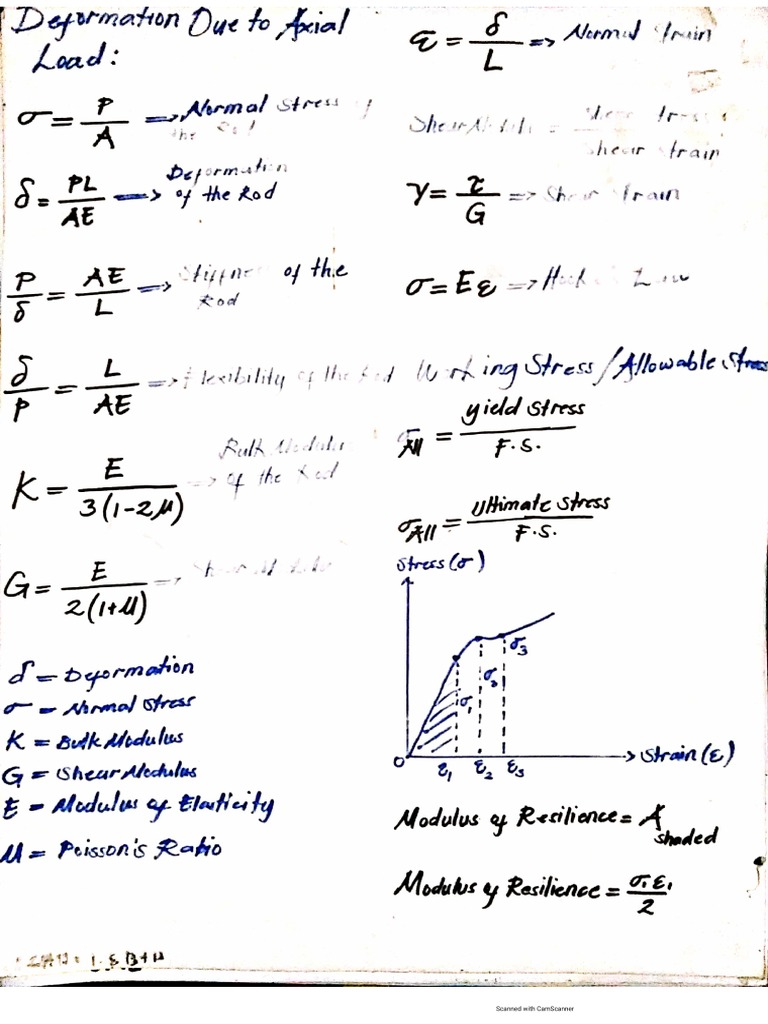 Deformation Due to Axial
Load:
σ = P/A => Normal Stress of
the Rod
δ = PL/AE => Deformation
of the Rod
P/δ = AE/L => Stiffness of the
Rod
δ/P = L/AE => Flexibility of the Rod
K = E/3(1-2μ) => Bulk Modulus
of the Rod
G = E/2(1+μ) => Shear Modulus
δ = Deformation
σ = Normal Stress
K = Bulk Modulus
G = Shear Modulus
E = Modulus of Elasticity
μ = Poisson's Ratio
ε = δ/L => Normal Strain
Shear Modulus = Shear Stress/Shear Strain
γ = τ/G => Shear Strain
σ = Eε => Hooke's Law
Working Stress/Allowable Stress
σAll = yield stress/F.S.
σAll = ultimate stress/F.S.
Stress(σ)
σ3
σ2
σ1
0
ε1 ε2 ε3
Strain(ε)
Modulus of Resilience = A shaded
Modulus of Resilience = σ1ε1/2
Scanned with CamScanner